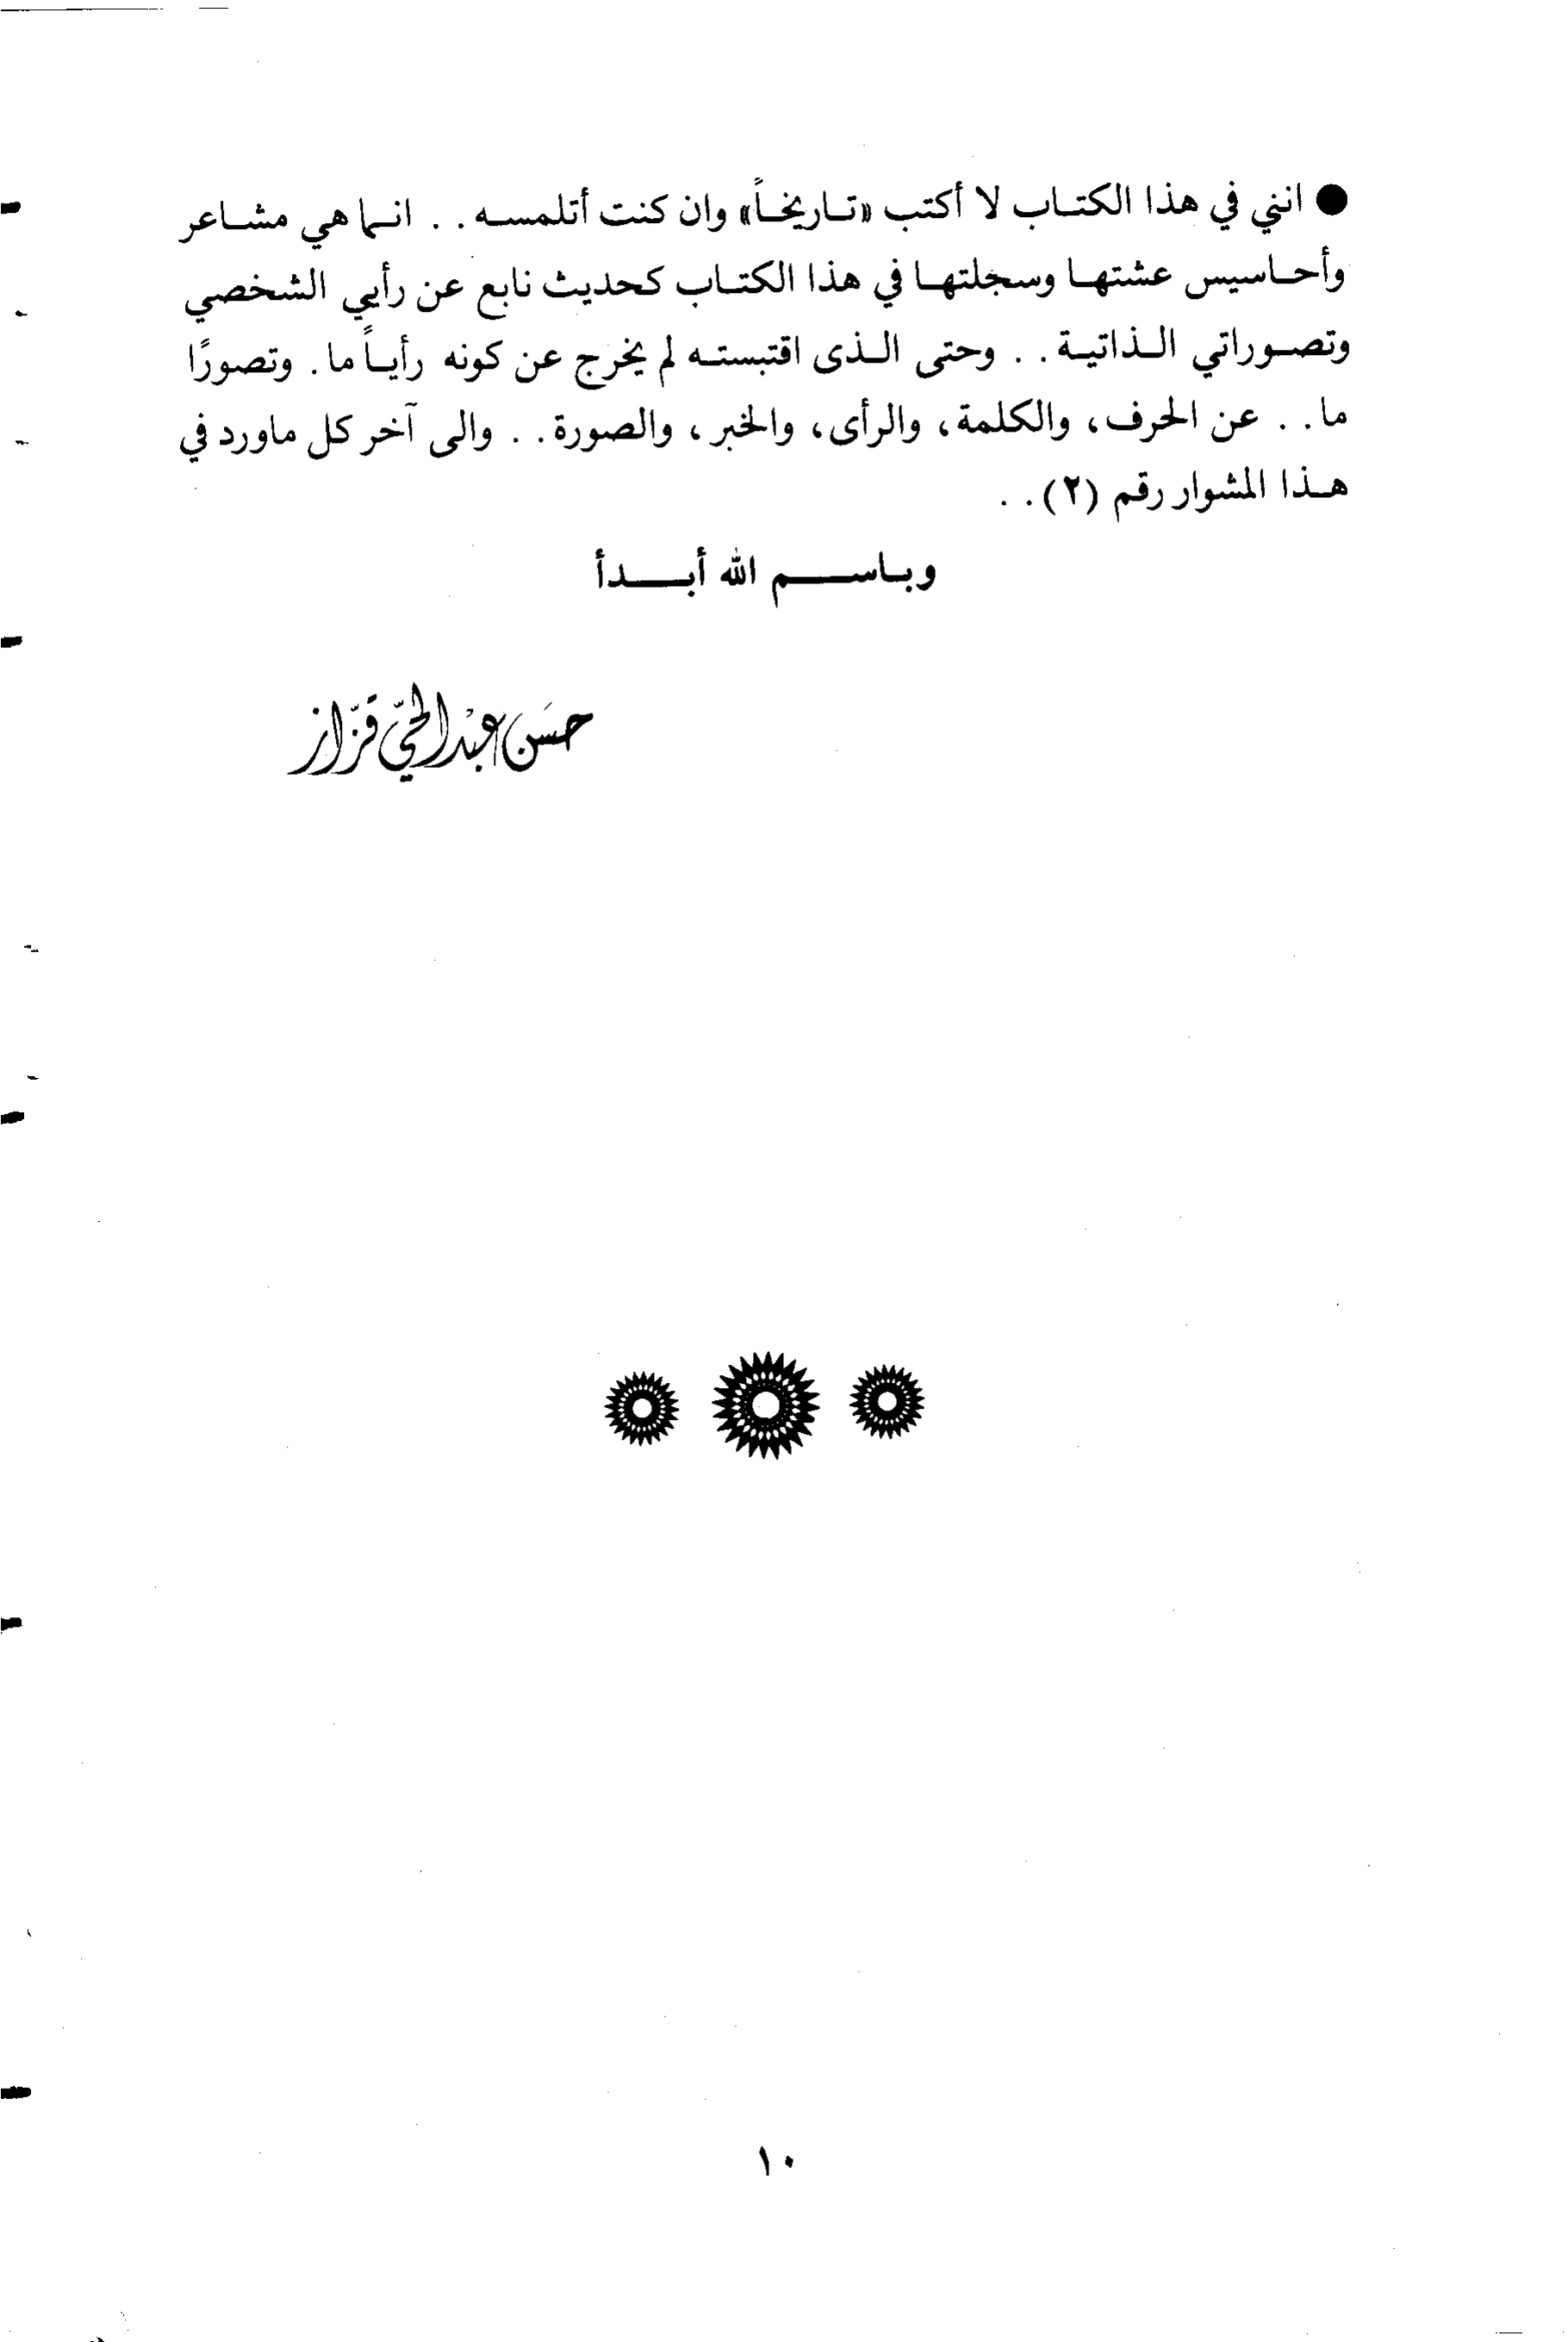 ● انني في هذا الكتاب لا أكتب «تاريخاً» وان كنت أتلمسه . . انما هي مشاعر
وأحاسيس عشتها وسجلتها في هذا الكتاب كحديث نابع عن رأيي الشخصي
وتصوراتي الذاتية . . وحتى الذى اقتبسته لم يخرج عن كونه رأياً ما . وتصورًا
ما . . عن الحرف، والكلمة، والرأى، والخبر، والصورة . . والى آخر كل ماورد في
هذا المشوار رقم (٢) . .
وباسم الله أبدأ
حسَن عبْد الحيّ قزّاز
١٠